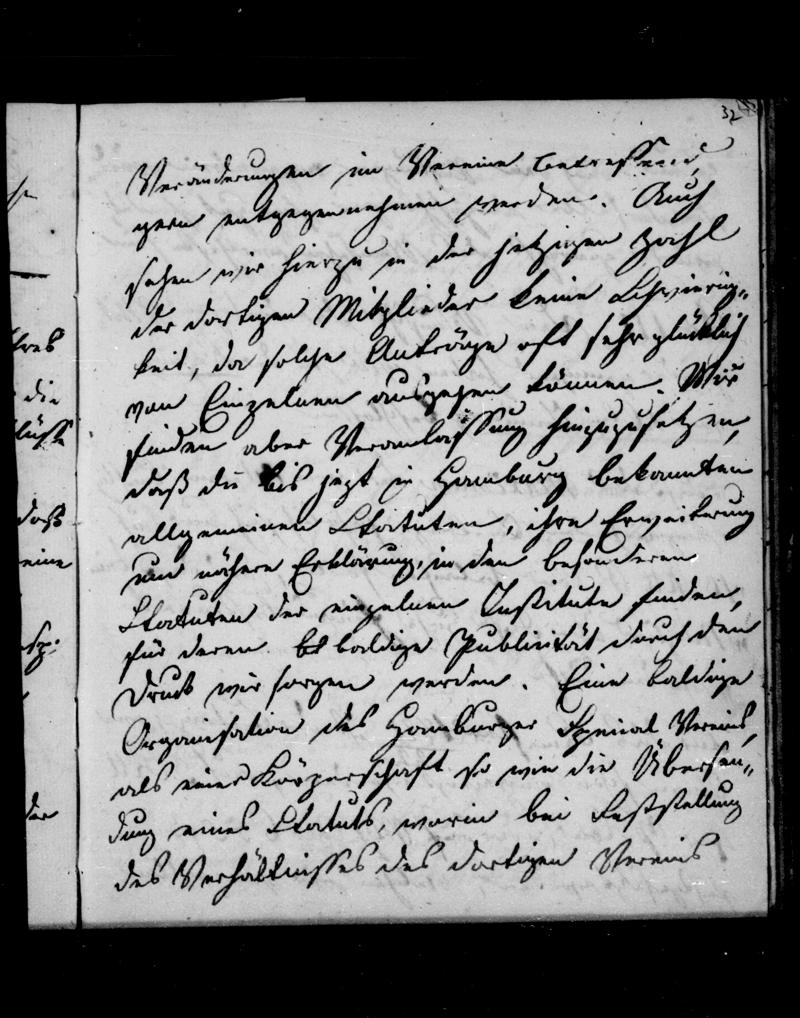 32
Veränderungen im Vereine betreffend,
gern entgegennehmen werden. Auch
sehen wir hierzu in der jetzigen Zahl
der dortigen Mitglieder keine Schwierig-
keit, da solche Anträge oft sehr glücklich
von Einzelnen ausgehen können. Wir
finden aber Veranlassung hinzuzusetzen,
daß die bis jezt in Hamburg bekannten
allgemeinen Statuten, ihre Erweiterung
und nähere Erklärung, in den besonderen
Statuten der einzelnen Institute finden,
für deren baldige Publicität durch den
Druck wir sorgen werden. Eine baldige
Organisation des Hamburger Special Vereins,
als einer Körperschaft so wie die Übersen-
dung eines Statuts, worin bei Feststellung
des Verhältnisses des dortigen Vereins
die
daß
eine
der